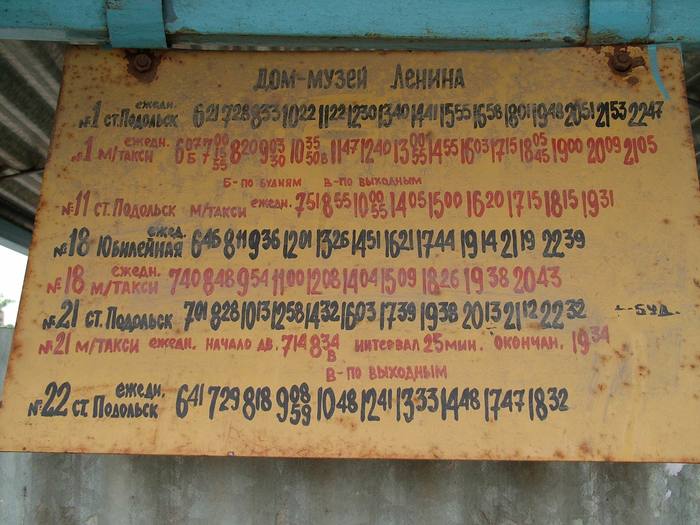 ДОМ-МУЗЕЙ ЛЕНИНА
№1 СТ. ПОДОЛЬСК ЕЖЕДН. 6²¹ 7²⁸ 8³³ 10²² 11²² 12³⁰ 13⁴⁰ 14⁴¹ 15⁵⁵ 16⁵⁸ 18⁰¹ 19⁴⁸ 20⁵¹ 21⁵³ 22⁴⁷
№1 М/ТАКСИ ЕЖЕДН. 8²⁰ 11⁴⁷ 12⁴⁰ 14⁵⁵ 16⁰³ 17¹⁵ 18⁰⁵ ₄₅ 19⁰⁰ 20⁰⁹ 21⁰⁵
Б-ПО БУДНЯМ В-ПО ВЫХОДНЫМ
№11 СТ. ПОДОЛЬСК М/ТАКСИ ЕЖЕДН. 7⁵¹ 8⁵⁵ 10⁰⁰ ₅₅ 14⁰⁵ 15⁰⁰ 16²⁰ 17¹⁵ 18¹⁵ 19³¹
№18 ЮБИЛЕЙНАЯ ЕЖЕД. 6⁴⁶ 8¹¹ 9³⁶ 12⁰¹ 13²⁶ 14⁵¹ 16²¹ 17⁴⁴ 19¹⁴ 21¹⁹ 22³⁹
№18 М/ТАКСИ ЕЖЕДН. 7⁴⁰ 8⁴⁸ 9⁵⁴ 11⁰⁰ 12⁰⁸ 14⁰⁴ 15⁰⁹ 18²⁶ 19³⁸ 20⁴³
№21 СТ. ПОДОЛЬСК 7⁰¹ 8²⁸ 10¹³ 12⁵⁸ 14³² 16⁰³ 17³⁹ 19³⁸ 20¹³ 21¹² 22³² -БУД.
№21 М/ТАКСИ ЕЖЕДН. НАЧАЛО ДВ. 7¹⁴ 8³⁴ В ИНТЕРВАЛ 25 МИН. ОКОНЧАН. 19³⁴
В-ПО ВЫХОДНЫМ
№22 СТ. ПОДОЛЬСК ЕЖЕДН. 6⁴¹ 7²⁹ 8¹⁸ 9⁰⁸ ₅₉ 10⁴⁸ 12⁴¹ 13³³ 14⁴⁸ 17⁴⁷ 18³²